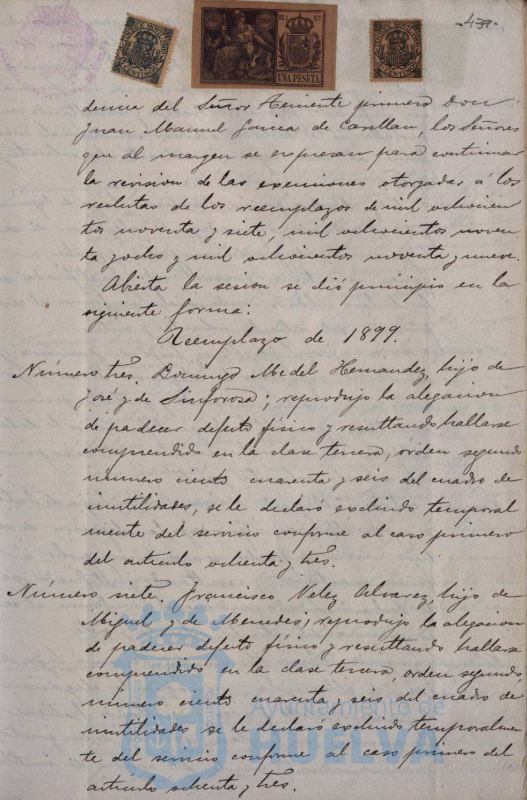 -439-
UNA PESETA
dencia del Señor Teniente primero Don
Juan Manuel García de Carellan, los Señores
que al margen se expresan para continuar
la revision de las exenciones otorgadas á los
reclutas de los reemplazos de mil ochocien
tos noventa y siete, mil ochocientos noven
ta y ocho y mil ochocientos noventa y nueve.
Abierta la sesion se dió principio en la
siguiente forma:
Reemplazo de 1899.
Número tres. Domingo Medel Hernandez, hijo de
José y de Sinforosa; reprodujo la alegacion
de padecer defecto físico y resultando hallarse
comprendido en la clase tercera, orden segundo
numero ciento cuarenta y seis del cuadro de
inutilidades, se le declaró excluido temporal
mente del servicio conforme al caso primero
del articulo ochenta y tres.
Número siete. Francisco Velez Alvarez, hijo de
Miguel y de Mercedes; reprodujo la alegacion
de padecer defecto físico y resultando hallarse
comprendido en la clase tercera, orden segundo,
número ciento cuarenta y seis del cuadro de
inutilidades se le declaró excluido temporalmen
te del servicio conforme al caso primero del
artículo ochenta y tres.
Ayuntamiento de
HUELVA